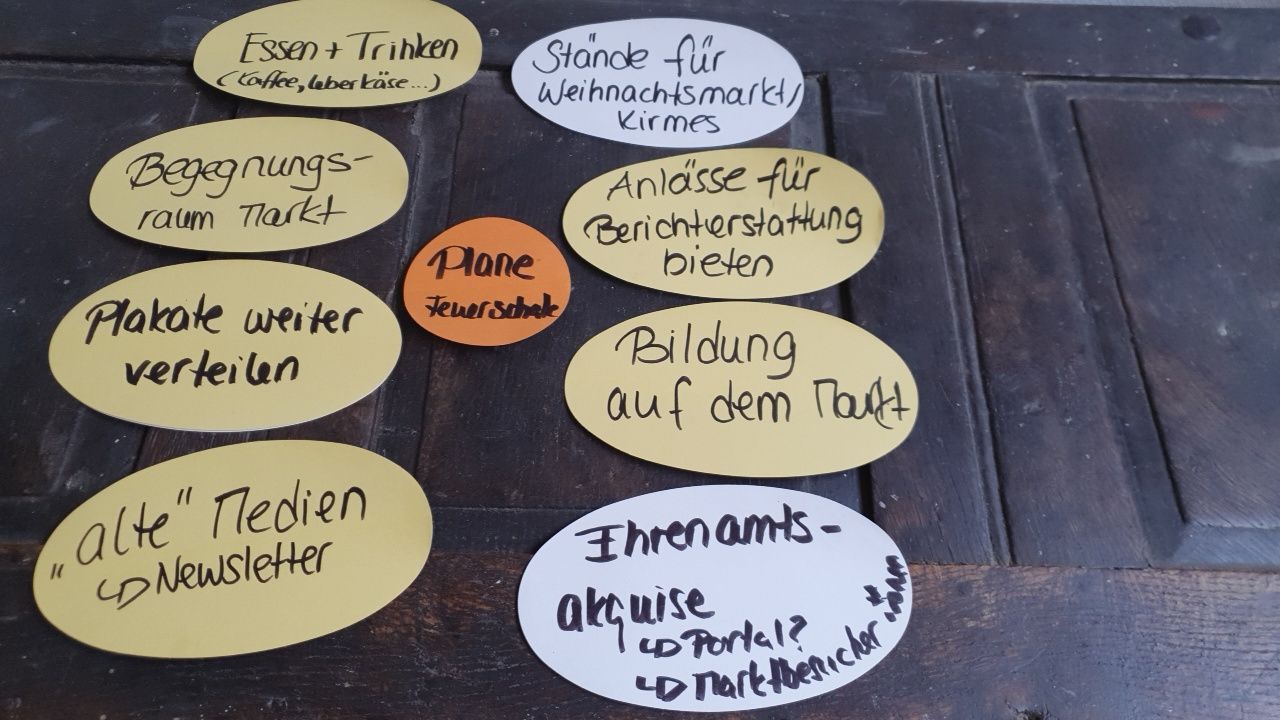 Essen + Trinken
(Kaffee, Leberkäse...)
Stände für
Weihnachtsmarkt/
Kirmes
Begegnungs-
raum Markt
Anlässe für
Berichterstattung
bieten
Plane
Feuerschale
Plakate weiter
verteilen
Bildung
auf dem Markt
"alte" Medien
↳ Newsletter
Ehrenamts-
akquise
↳ Portal?
↳ Marktbesucher*innen